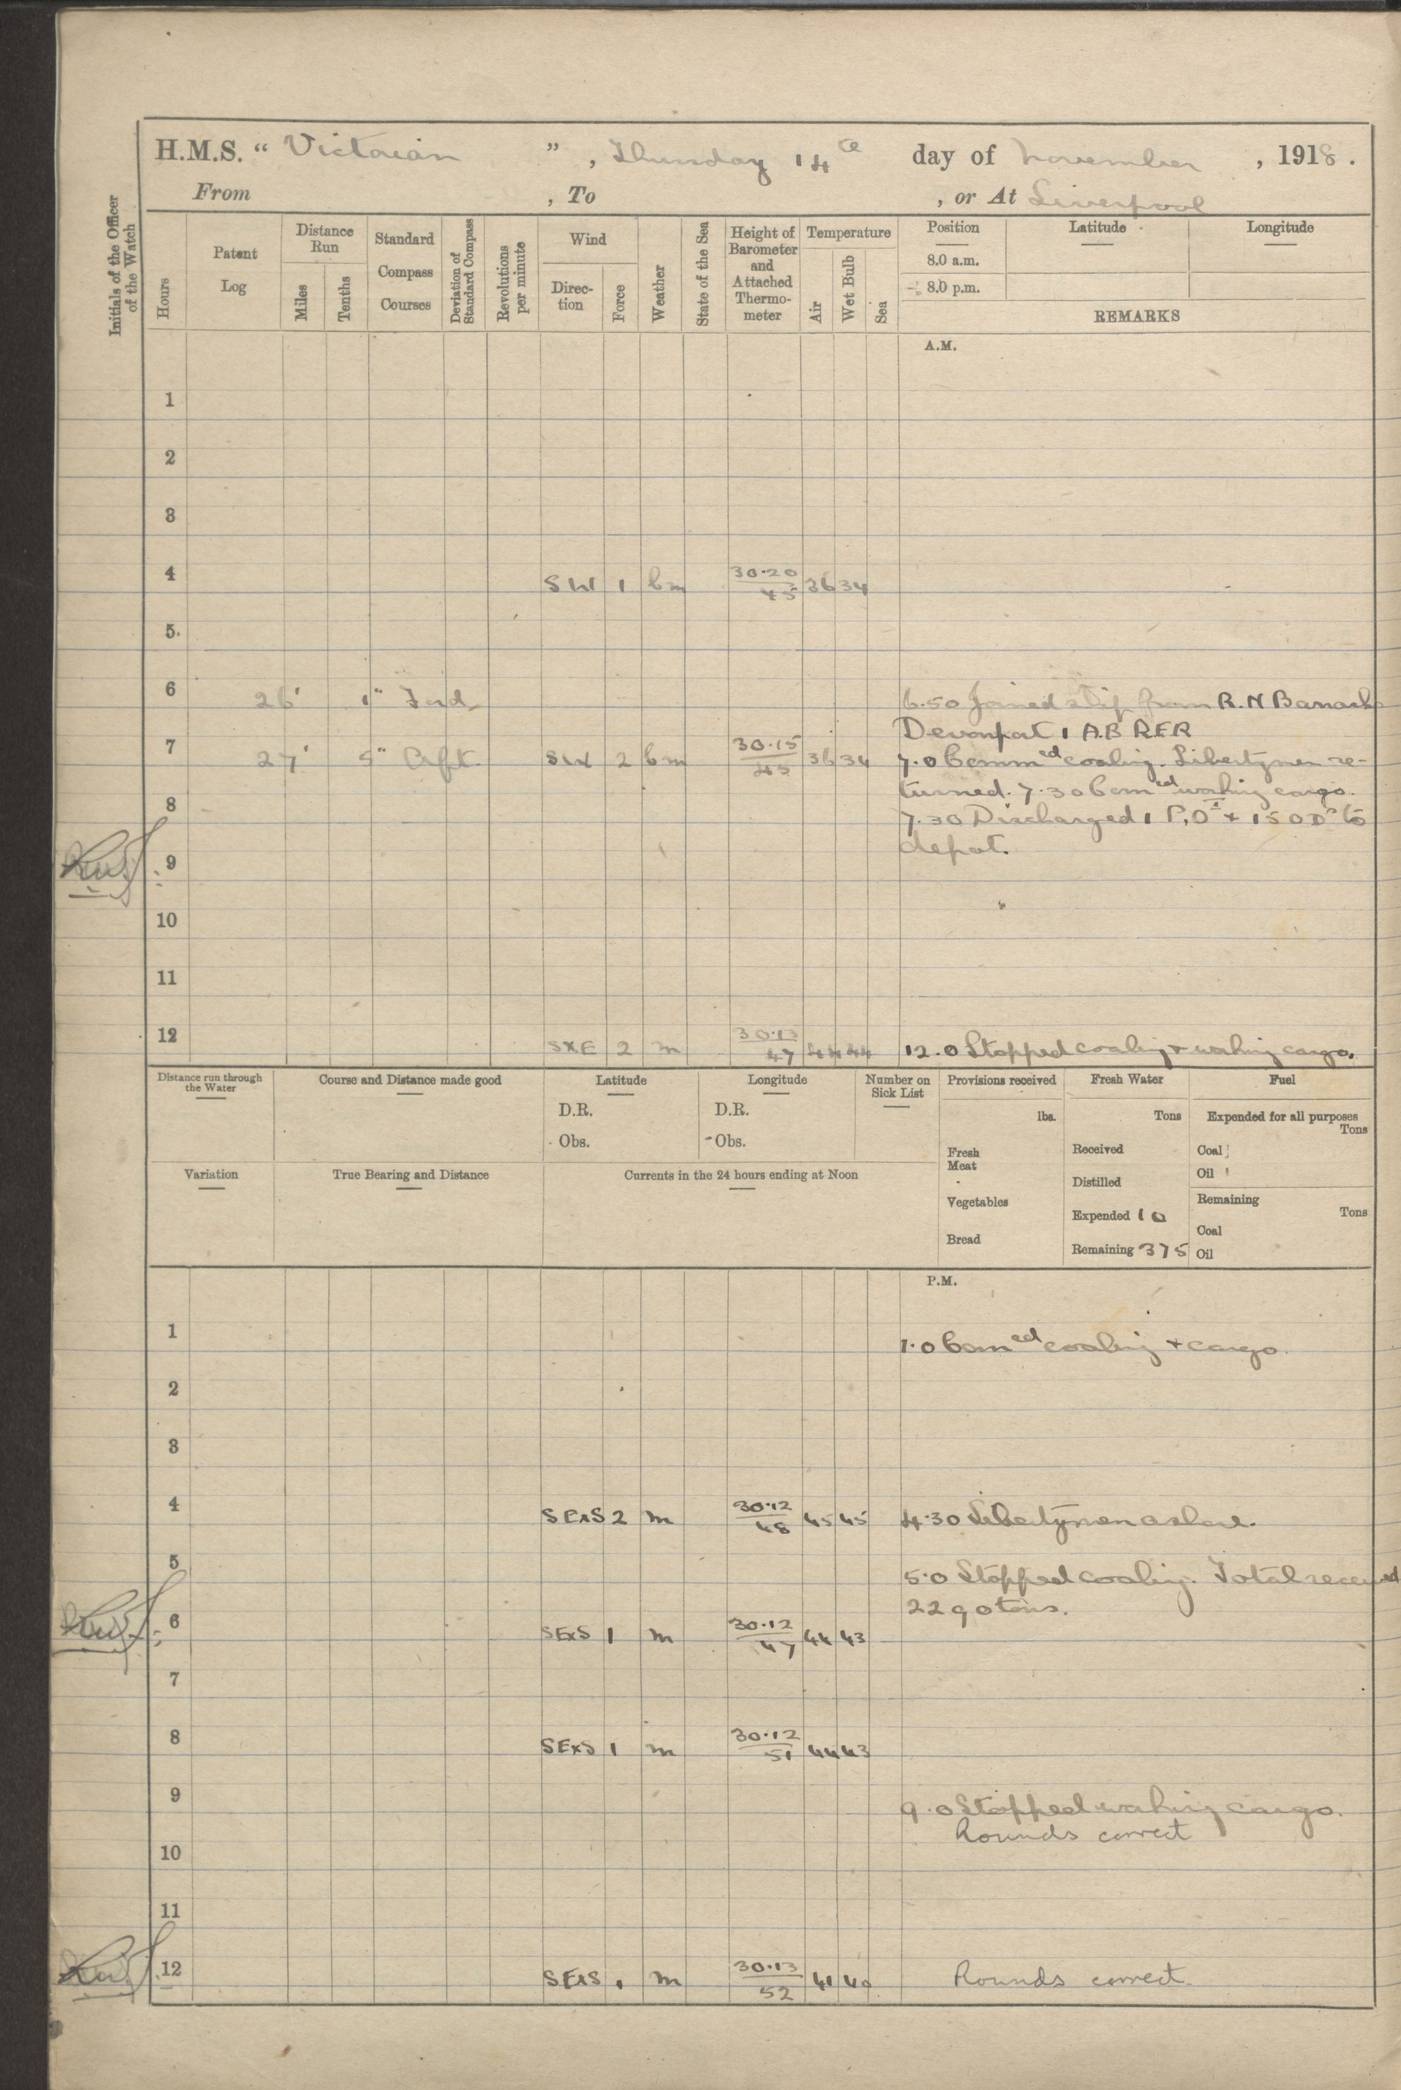 H.M.S. “ Victorian ” , Thursday 14th day of November , 1918 .
From , To , or At Liverpool
Initials of the Officer of the Watch
Hours
Patent Log
Distance Run
Miles
Tenths
Standard Compass Courses
Deviation of Standard Compass
Revolutions per minute
Wind
Direc-tion
Force
Weather
State of the Sea
Height of Barometer and Attached Thermo-meter
Temperature
Air
Wet Bulb
Sea
Position
8.0 a.m.
8.0 p.m.
Latitude
Longitude
REMARKS
A.M.
1
2
3
4 SW 1 bm 30·20 45 36 34
5
6 26' 1" Ford 6.50 Joined ship from R.N Barracks
Devonport 1 A.B RFR
7 27' 5" Aft. SW 2 bm 30·15 45 36 34 7.0 Commed coaling. Libertymen re-
turned. 7.30 Comed working cargo.
8 7.30 Discharged 1 P.O & 15 ODs to
depot.
9
10
11
12 SXE 2 m 30·13 47 44 44 12.0 Stopped coaling & working cargo.
Distance run through the Water
Course and Distance made good
Latitude
D.R.
Obs.
Longitude
D.R.
Obs.
Number on Sick List
Provisions received
lbs.
Fresh Meat
Vegetables
Bread
Fresh Water
Tons
Received
Distilled
Expended 10
Remaining 375
Fuel
Expended for all purposes
Tons
Coal
Oil
Remaining
Tons
Coal
Oil
Variation
True Bearing and Distance
Currents in the 24 hours ending at Noon
P.M.
1 1.0 Comed coaling & cargo.
2
3
4 SExS 2 m 30·12 48 45 45 4.30 Libertymen ashore.
5 5.0 Stopped coaling. Total received
2290 tons.
6 SExS 1 m 30·12 47 44 43
7
8 SExS 1 m 30·12 51 44 43
9 9.0 Stopped working cargo.
Rounds correct
10
11
12 SExS 1 m 30·13 52 41 40 Rounds correct.